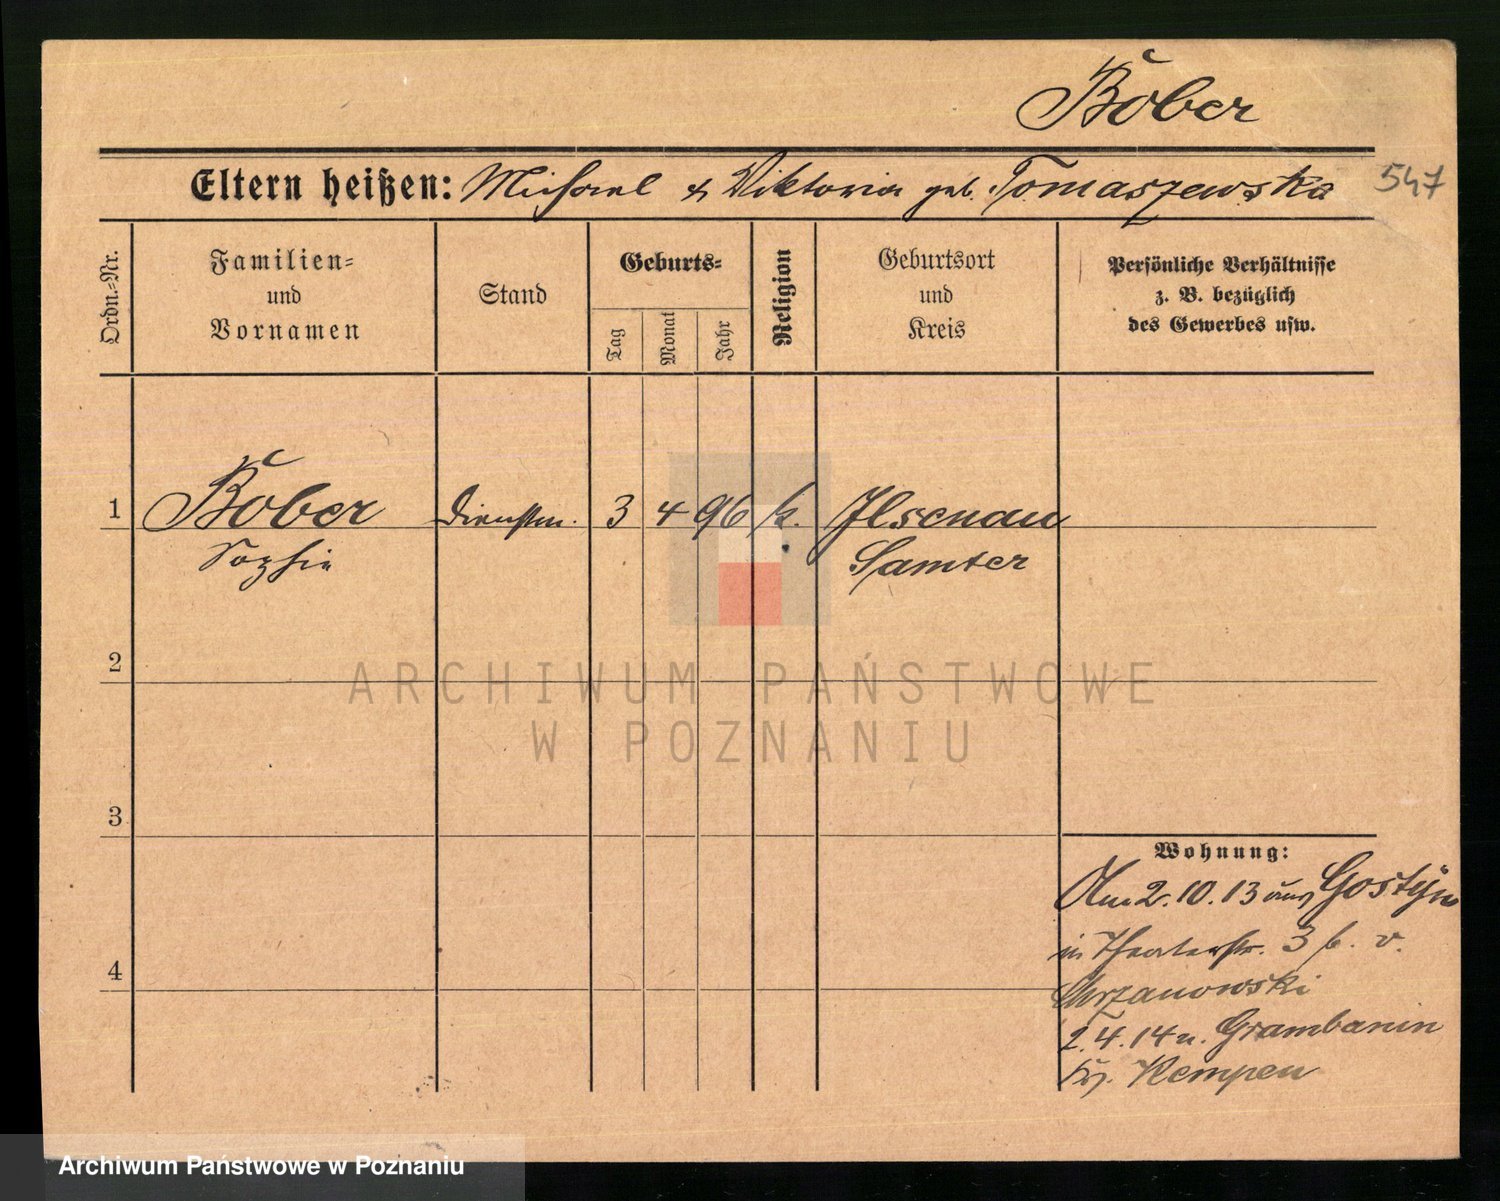 Bober
Eltern heißen: Michael & Viktoria geb. Tomaszewska 547
Ordn.-Nr.
Familien-
und
Vornamen
Stand
Geburts-
Tag
Monat
Jahr
Religion
Geburtsort
und
Kreis
Persönliche Verhältnisse
z. B. bezüglich
des Gewerbes usw.
1 Bober Dienstm. 3 4 96 k. Ilsenau
Sophie Samter
2
ARCHIWUM PAŃSTWOWE
W POZNANIU
3
Wohnung:
Am 2.10.13 aus Gostyn
in Theaterstr. 3 b. v.
Chrzanowski
2.4.14 n. Grambanin
Kr. Kempen
4
Archiwum Państwowe w Poznaniu